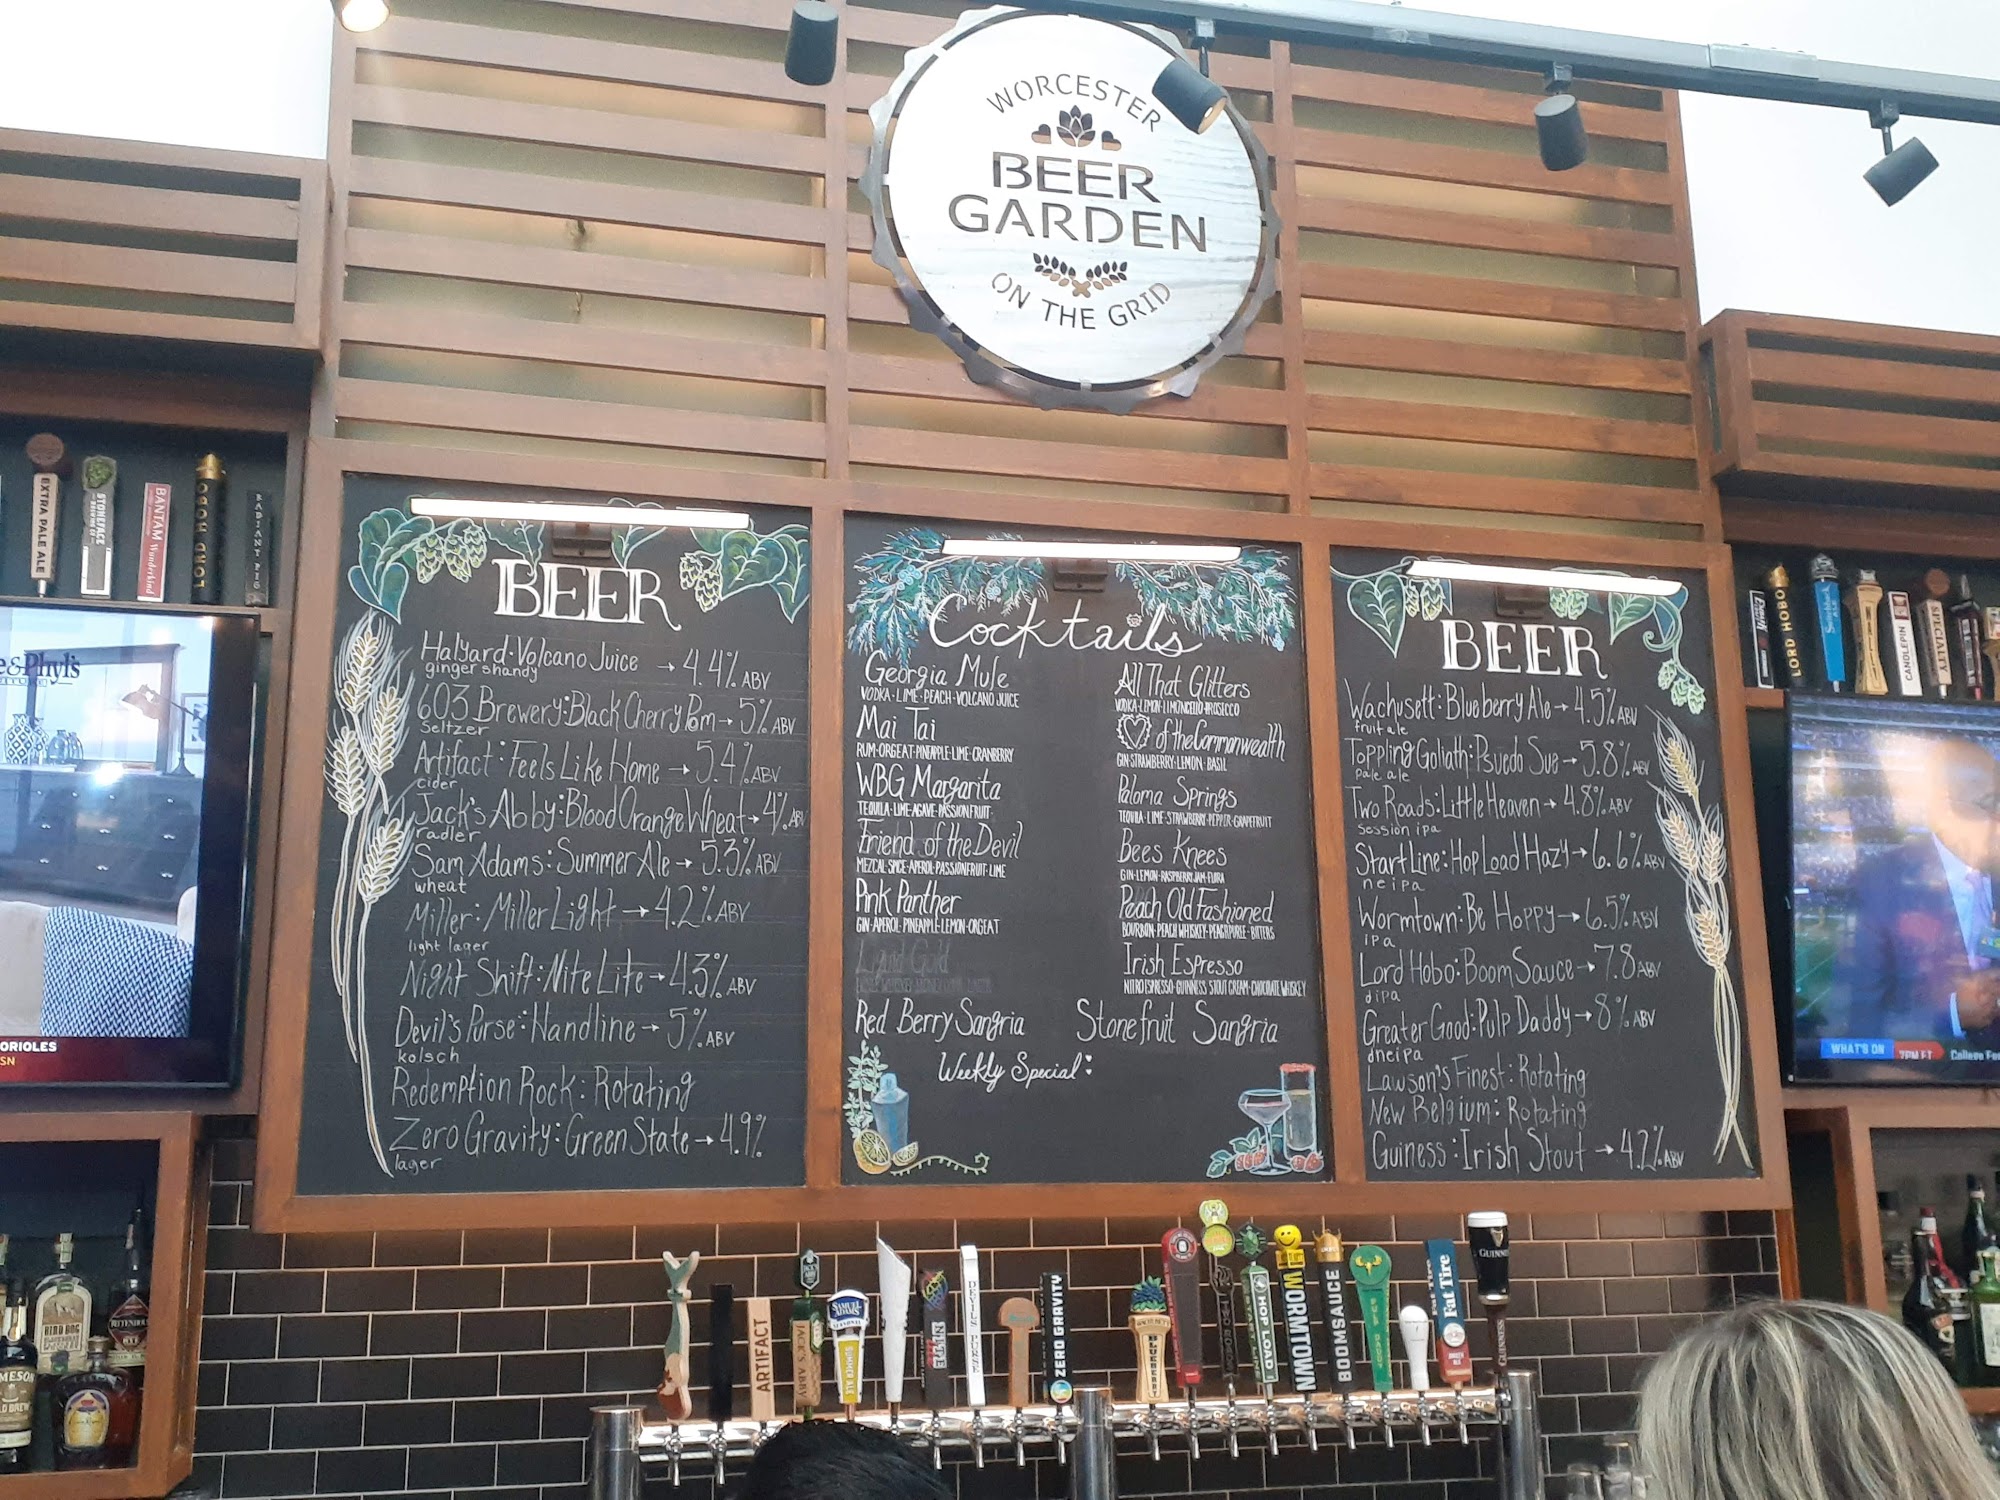 WORCESTER
BEER
GARDEN
ON THE GRID
BEER
Halyard:Volcano Juice → 4.4% ABV
ginger shandy
603 Brewery:Black Cherry Pom → 5% ABV
Seltzer
Artifact:Feels Like Home → 5.4% ABV
cider
Jack's Abby:Blood Orange Wheat → 4% ABV
radler
Sam Adams:Summer Ale → 5.3% ABV
wheat
Miller:Miller Light → 4.2% ABV
light lager
Night Shift:Nite Lite → 4.3% ABV
Devil's Purse:Handline → 5% ABV
kolsch
Redemption Rock:Rotating
Zero Gravity:Green State → 4.9%
lager
Cocktails
Georgia Mule
VODKA·LIME·PEACH·VOLCANO JUICE
Mai Tai
RUM·ORGEAT·PINEAPPLE·LIME·CRANBERRY
WBG Margarita
TEQUILA·LIME·AGAVE·PASSIONFRUIT
Friend of the Devil
MEZCAL·SPICE·APEROL·PASSIONFRUIT·LIME
Pink Panther
GIN·APEROL·PINEAPPLE·LEMON·ORGEAT
Liquid Gold
Red Berry Sangria
All That Glitters
VODKA·LEMON·LIMONCELLO·PROSECCO
of the Commonwealth
GIN·STRAWBERRY·LEMON·BASIL
Paloma Springs
TEQUILA·LIME·STRAWBERRY·PEPPER·GRAPEFRUIT
Bees Knees
GIN·LEMON·RASPBERRY JAM
Peach Old Fashioned
BOURBON·PEACH WHISKEY·PEACH PUREE·BITTERS
Irish Espresso
NITRO ESPRESSO·GUINNESS STOUT CREAM·CHOCOLATE WHISKEY
Stonefruit Sangria
Weekly Special:
BEER
Wachusett:Blueberry Ale → 4.5% ABV
fruit ale
Toppling Goliath:Psuedo Sue → 5.8% ABV
pale ale
Two Roads:Little Heaven → 4.8% ABV
session ipa
Start Line:Hop Load Hazy → 6.6% ABV
neipa
Wormtown:Be Hoppy → 6.5% ABV
ipa
Lord Hobo:Boom Sauce → 7.8 ABV
dipa
Greater Good:Pulp Daddy → 8% ABV
dneipa
Lawson's Finest:Rotating
New Belgium:Rotating
Guiness:Irish Stout → 4.2% ABV
EXTRA PALE ALE
STONEFACE
BREWING CO
BANTAM
Wunderkind
LORD HOBO
RADIANT PIG
&Phyl's
ORIOLES
SN
LORD HOBO
CANDLEPIN
SPECIALTY
WHAT'S ON
7PM ET
College
ARTIFACT
JACK'S ABBY
SAMUEL ADAMS
SUMMER ALE
NITE
DEVILS PURSE
ZERO GRAVITY
BLUEBERRY
HOP LOAD
WORMTOWN
BOOMSAUCE
PULP DADDY
Fat Tire
GUINNESS
GUINNESS
RITTENHOUSE